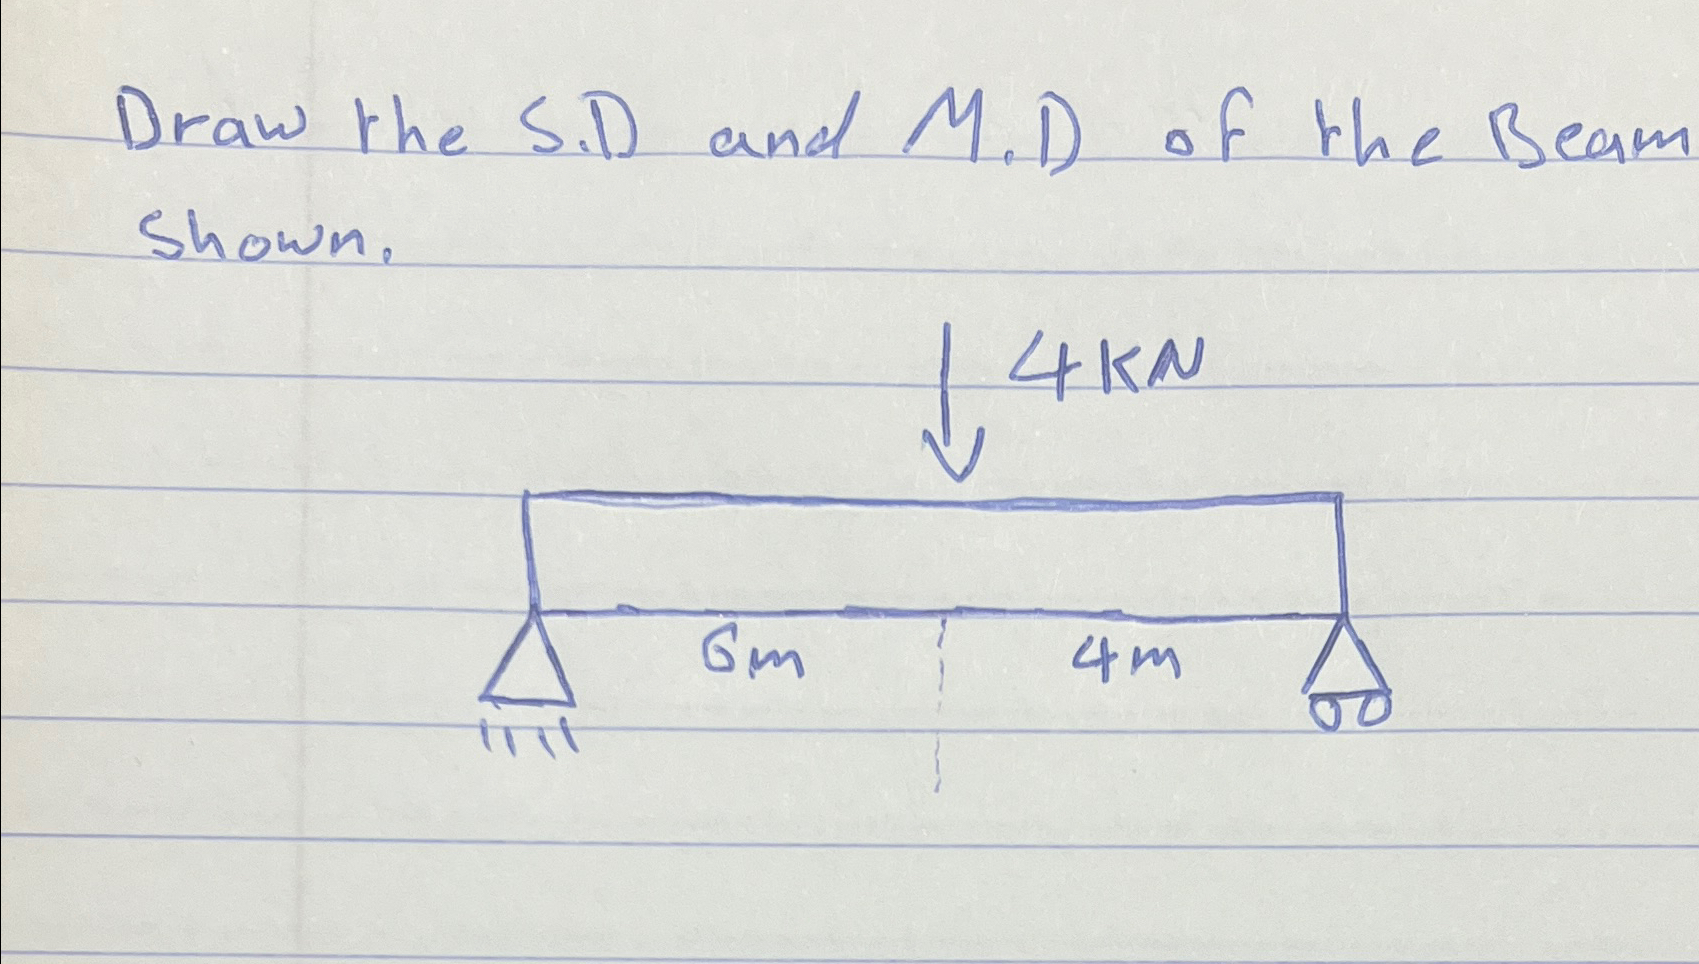 Draw the S.D and M.D of the Beam
shown.
4KN
6m 4m